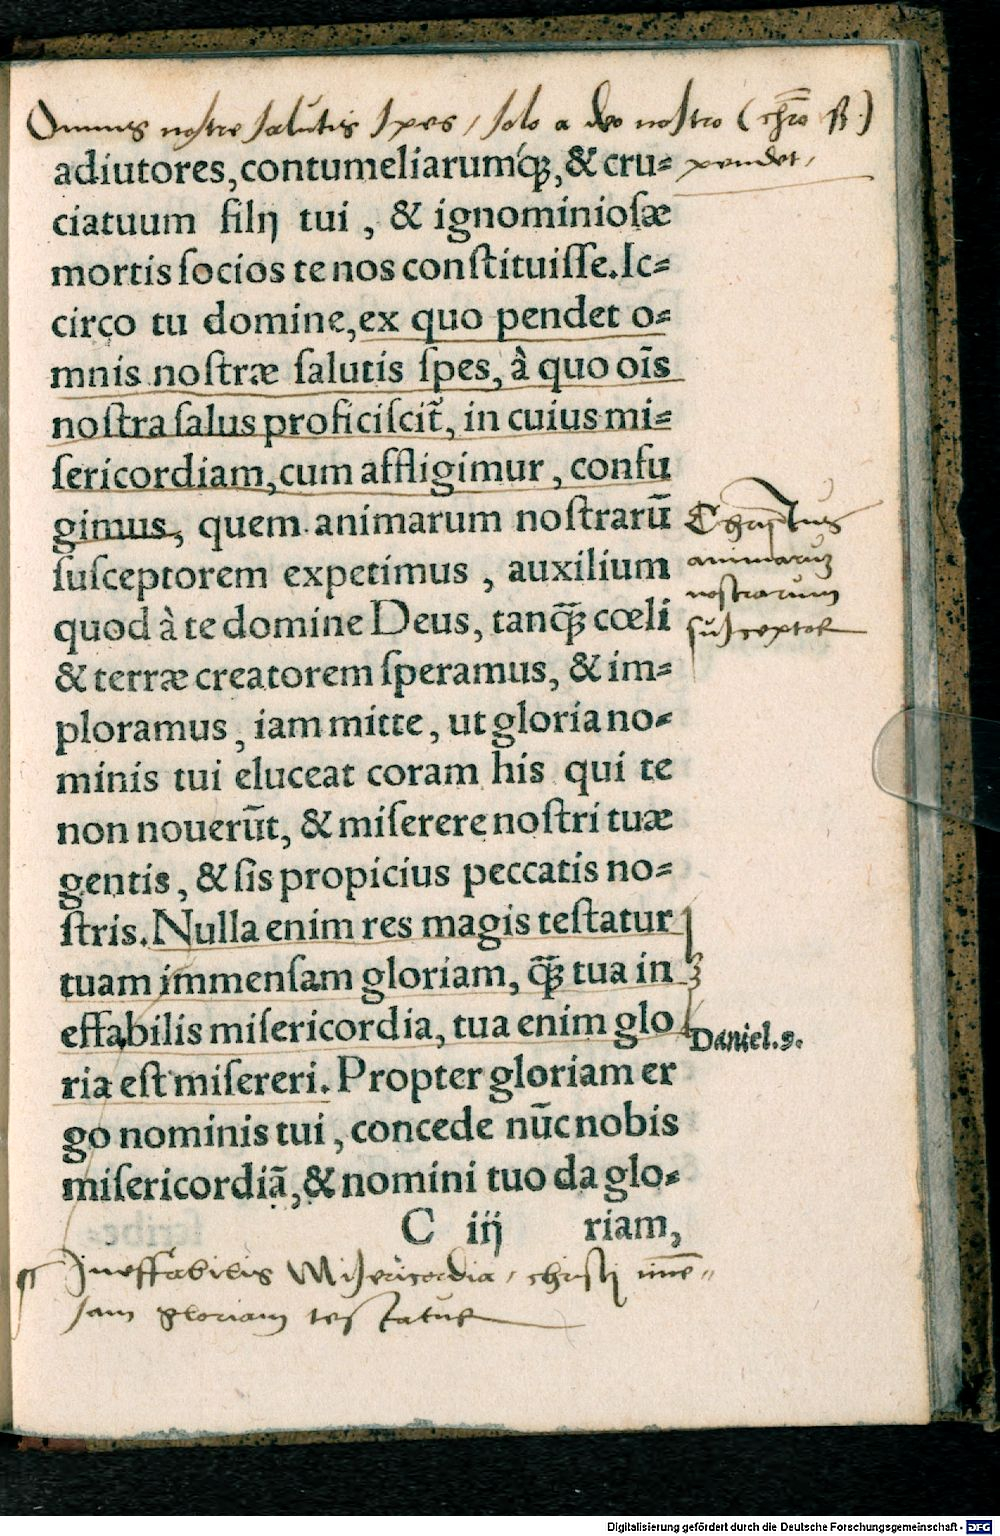 Omnis nostre salutis spes, solo a deo nostro (chro
pendet,
adiutores, contumeliarumq́ꝫ, & cru⸗
ciatuum filij tui , & ignominiosæ
mortis socios te nos constituisse. Ic⸗
circo tu domine, ex quo pendet o⸗
mnis nostræ salutis spes, à quo oīs
nostra salus proficiscit̃, in cuius mi⸗
sericordiam, cum affligimur , confu
gimus, quem animarum nostrarū
susceptorem expetimus , auxilium
quod à te domine Deus, tanq̄ꝫ cœli
& terræ creatorem speramus, & im⸗
ploramus , iam mitte , ut gloria no⸗
minis tui eluceat coram his qui te
non nouerūt, & miserere nostri tuæ
gentis , & sis propicius peccatis no⸗
stris. Nulla enim res magis testatur
tuam immensam gloriam, q̄ꝫ tua in
effabilis misericordia, tua enim glo
ria est misereri. Propter gloriam er
go nominis tui , concede nūc nobis
misericordiã, & nomini tuo da glo⸗
C iij riam,
Christus
animarum
nostrarum
susceptor
Daniel. 9.
Ineffabilis Misericordia, christi īmē⸗
sam gloriam testatur
Digitalisierung gefördert durch die Deutsche Forschungsgemeinschaft - DFG